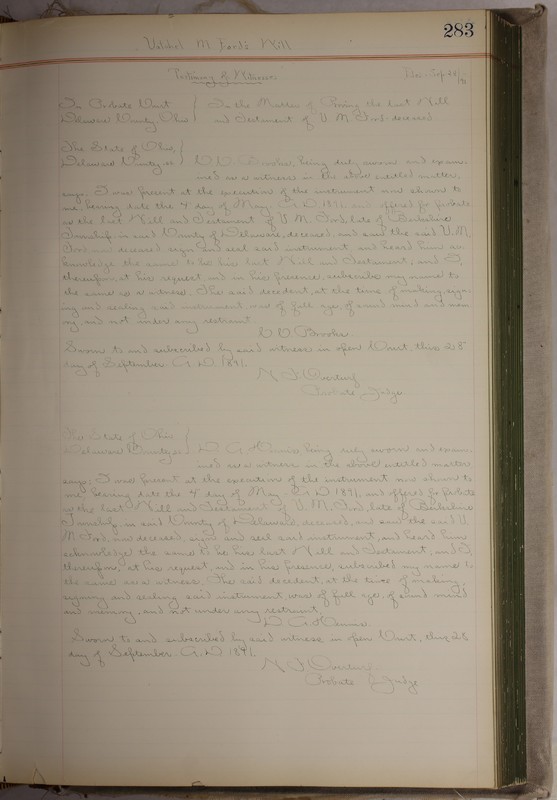 283
M. Ford's Will
Testimony of Witnesses
Filed Sep 28/91
In Probate Court
In the Matter of Proving the last Will
Delaware County, Ohio
and Testament of V. M. Ford deceased
The State of Ohio
Delaware County, ss
being duly sworn and exam-
ined as a witness in the above entitled matter,
says: I was present at the execution of the instrument now shown to
me bearing date the 4" day of May A. D. 1891, and offered for probate
as the last Will and Testament of V. M. Ford, late of Berkshire
Township in said County of Delaware, deceased, and saw the said V. M.
Ford now deceased sign and seal said instrument, and heard him ac-
knowledge the same to be his last Will and Testament, and I,
thereupon, at his request and in his presence, subscribed my name to
the same as a witness. The said decedent, at the time of making, sign-
ing and sealing said instrument, was of full age, of sound mind and mem-
ory and not under any restraint
Brooks
Sworn to and subscribed by said witness in open Court, this 28
day of September A. D. 1891.
Overturf
Probate Judge
The State of Ohio
Delaware County, ss
being duly sworn and exam-
ined as a witness in the above entitled matter
says: I was present at the execution of the instrument now shown to
me bearing date the 4" day of May A. D. 1891, and offered for probate
as the last Will and Testament of V. M. Ford, late of Berkshire
Township in said County of Delaware, deceased, and saw the said V.
M. Ford, now deceased, sign and seal said instrument, and heard him
acknowledge the same to be his last Will and Testament, and I,
thereupon, at his request, and in his presence, subscribed my name to
the same as a witness. The said decedent, at the time of making,
signing and sealing said instrument was of full age, of sound mind
and memory, and not under any restraint.
Sworn to and subscribed by said witness in open Court, this 28
day of September A. D. 1891.
Overturf
Probate Judge